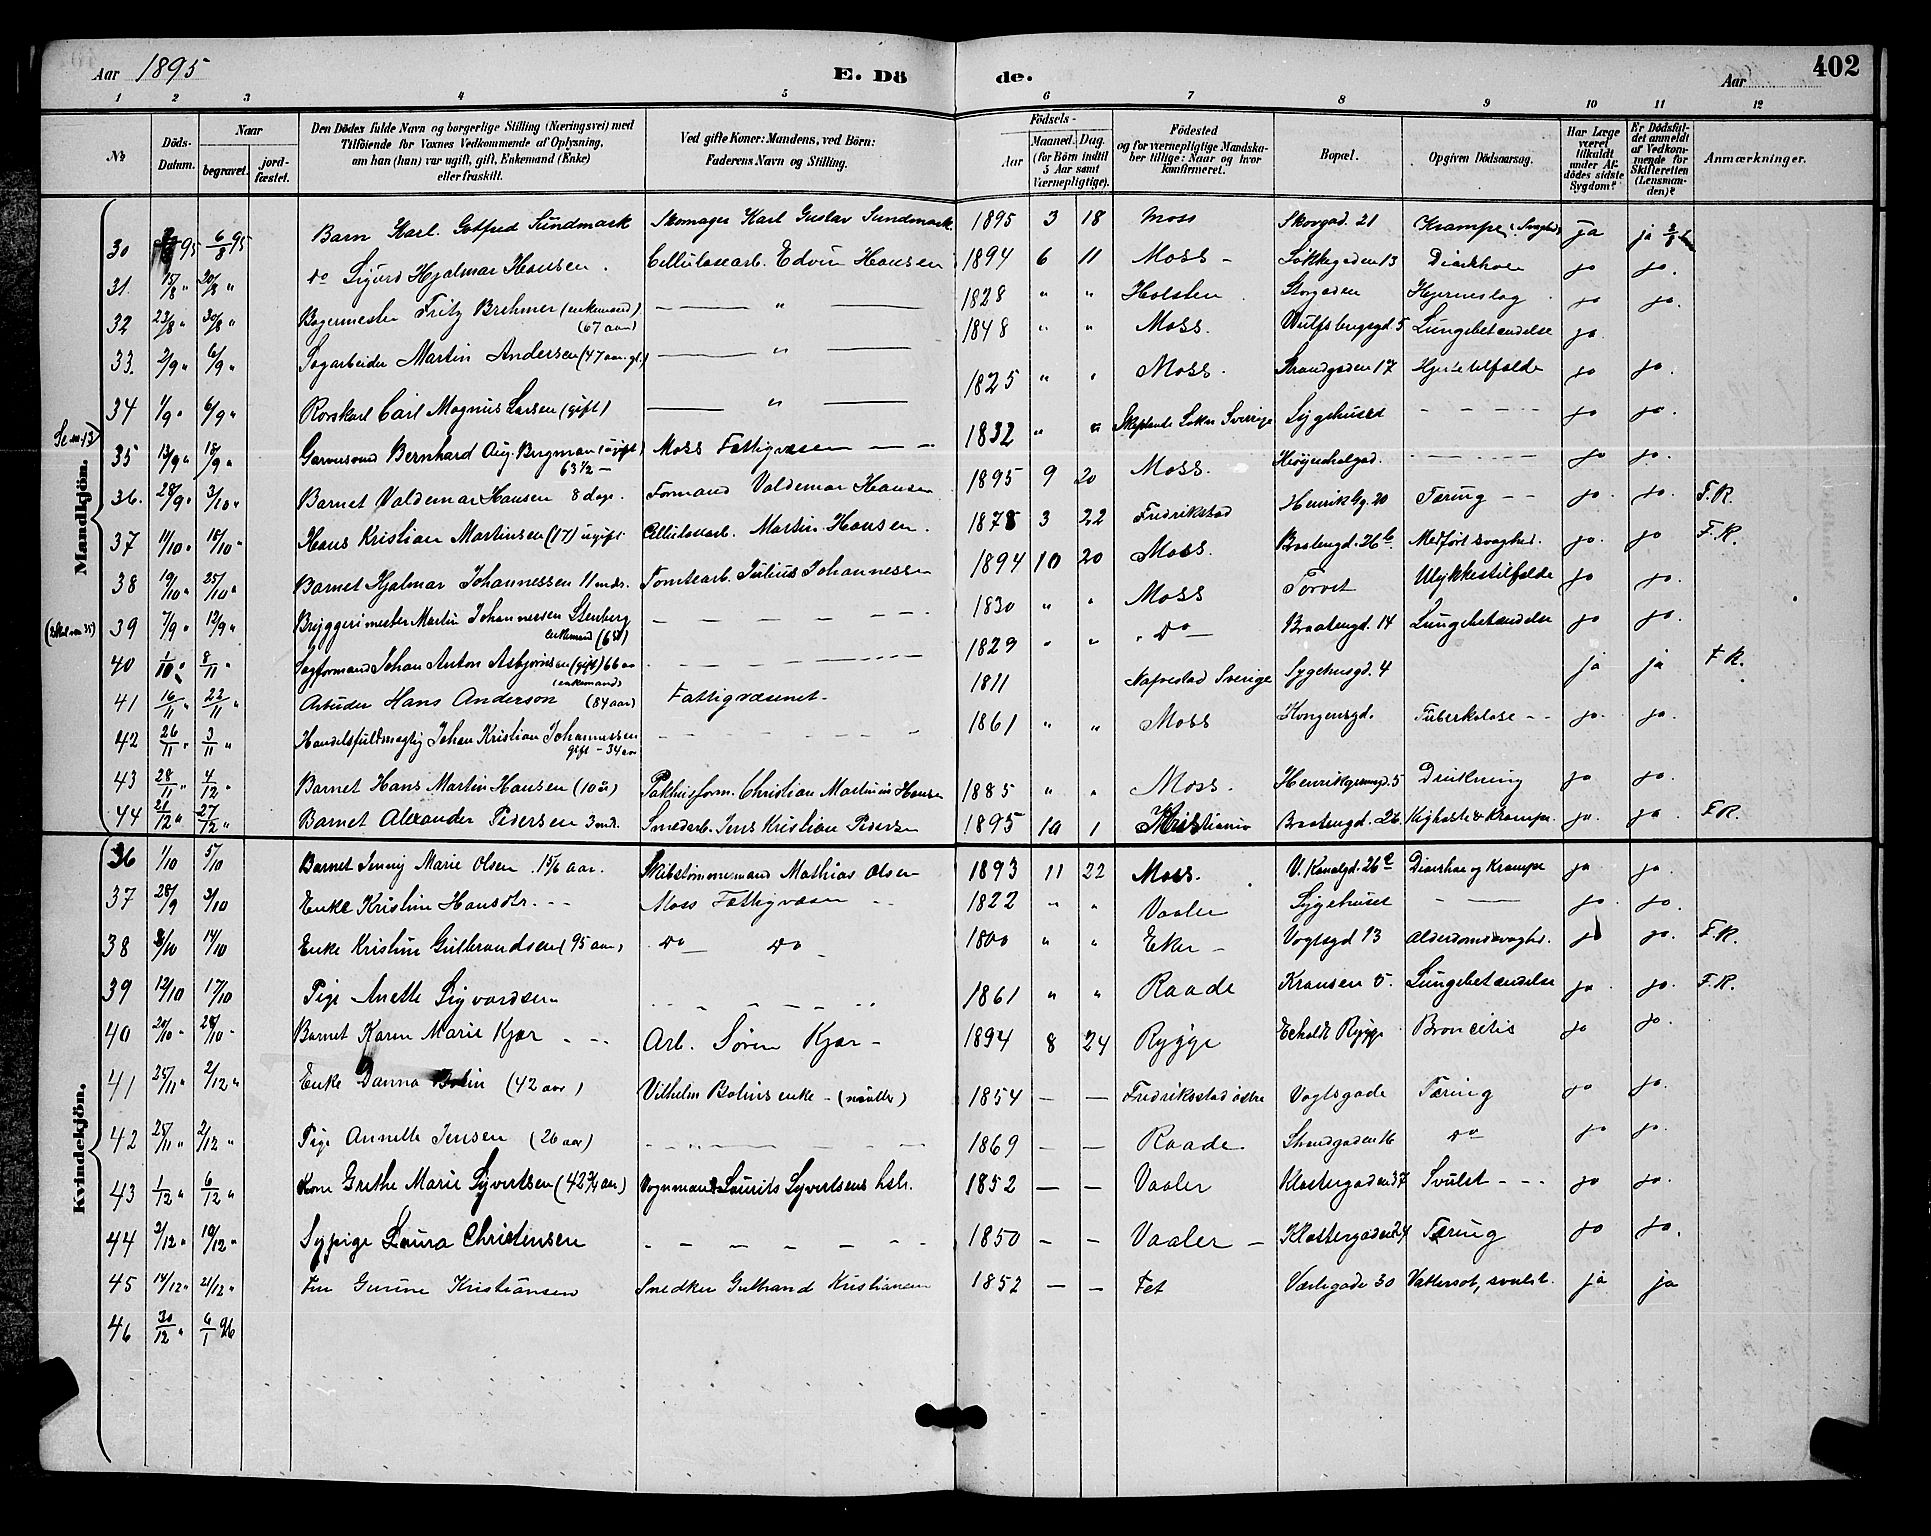 Aar 1895
E. Dö
de.
Aar
402
1 2 3 4 5 6 7 8 9 10 11 12
No
Döds-Datum.
Naar
begravet.
jord-fæstet.
Den Dödes fulde Navn og borgerlige Stilling (Næringsvei) med Tilföiende for Voxnes Vedkommende af Oplysning, om han (hun) var ugift, gift, Enkemand (Enke) eller fraskilt.
Ved gifte Koner: Mandens, ved Börn: Faderens Navn og Stilling.
Födsels-
Aar
Maaned. Dag. (for Börn indtil 5 Aar samt Værnepligtige).
Födested og for værnepligtige Mandskaber tillige: Naar og hvor konfirmeret.
Bopæl.
Opgiven Dödsaarsag.
Har Læge været tilkaldt under Afdödes sidste Sygdom?
Er Dödsfaldet anmeldt af Vedkommende for Skifteretten (Lensmanden)?
Anmærkninger.
Mandkjön.
30 95 6/8 95 Barn Karl Gotfred Sundmark Skomager Karl Gustav Sundmark 1895 3 18 Moss Skovgad. 21 Krampe ja ja
31. 15/8 " 20/8 " do Sigurd Hjalmar Hansen. Cellulosearb. Edvin Hansen 1894 6 11 Moss - Løkkegaden 13 Diarhoe ja ja.
32 23/8 " 30/8 " Bagermester Fritz Brehmer (enkemand) (67 aar) " 1828 " " Holsten Storgaden Hjerneslag ja ja.
33. 2/9 " 6/9 " Sagarbeider Martin Andersen (47 aar gl.) " 1848 " " Moss. Wulfsbergsgd. 5 Lungebetændelse ja
34 1/9 " 6/9 " Rorskarl Carl Magnus Larsen (gift) " 1825 " " Moss. Strandgaden 17 Hjertetilfælde ja ja.
35 13/9 " 18/9 " Garversvend Bernhard Aug. Bergman (ugift) 63 1/2 - Moss Fattigvæsen 1832 " " Sverige Sygehuset ja ja.
36. 28/9 " 3/10 " Barnet Valdemar Hansen 8 dage. Formand Valdemar Hansen 1895 9 20 Moss. ja ja.
37 11/10 " 15/10 " Hans Kristian Martinsen (17) ugift. Cellulosearb. Martin Hansen. 1878 3 22 Fredrikstad Henrik Gg. 20 Tæring ja. ja. F.R.
38 19/10 " 25/10 " Barnet Hjalmar Johannessen 11 mdr. Tomtearb. Julius Johannessen 1894 10 20 Moss. Braatengd. 26b Medført svaghed. ja. ja F.R.
39 7/9 " 12/9 " Bryggerimester Martin Johannessen Stenberg enkemand (65) 1830 " " Moss Torvet Ulykkestilfælde ja ja.
40 1/10 " 8/11 " Sagformand Johan Anton Asbjørnsen (gift) 66 aar 1829 " " do - Braatengd. 14 Lungebetændelse ja ja.
41 16/11 " 22/11 " Arbeider Hans Anderson (enkemand) (84 aar) Fattigvæsenet - 1811 Sverige Sygehusgd. 4 ja ja F.R.
42 26/11 " 3/11 " Handelsfuldmægtig Johan Kristian Johannessen gift - 34 aar 1861 " " Moss Kongensgd. Tuberkulose - - ja. ja.
43 28/11 " 4/12 " Barnet Hans Martin Hansen (10 år) Pakhusform. Christian Martinius Hansen 1885 " " Moss. Henrikgernergd. 5 Drukning ja ja.
44 21/12 " 27/12 " Barnet Alexander Pedersen 3 mdr. Smedarb. Jens Kristian Pedersen 1895 10 1 Kristiania Braatengd. 26. Kighoste & Krampe. ja. ja. F.R.
Kvindekjön.
36 1/10 5/10 Barnet Jenny Marie Olsen. 1 5/6 aar. Skibstømmermand Mathias Olsen 1893 11 22 Moss. V. Kanalgd. 26e Diarrhoe og Krampe ja ja.
37 28/9 3/10 Enke Kristine Hansdtr. - - Moss Fattigvæsen 1822 " " Vaaler Sygehuset ja. ja.
38 8/10 14/10 Enke Kristine Gulbrandsen (95 aar) do do 1800 " " Eker - Vogtsgd 13 Alderdomssvaghed. ja ja. F.R.
39 12/10 17/10 Pige Anette Sigvardsen 1861 " " Raade Kransen 5. Lungebetændelse ja ja. F.R.
40 20/10 " 28/10 " Barnet Karen Marie Kjær Arb. Søren Kjær - 1894 8 24 Rygge Eeholdt Rygge Broncitis ja ja.
41 25/11 " 2/12 " Enke Danna Bolin (42 aar) Vilhelm Bolins enke - (møller) 1854 — — Fredriksstad østre Vogtsgade Tæring ja ja.
42 25/11 " 2/12 " Pige Annette Jensen (26 aar) 1869 — — Raade Strandgaden 16 do ja ja.
43 1/12 " 6/12 " Kone Grethe Marie Syvertsen (42 3/4 aar) Vognmand Laurits Syvertsens hstr. 1852 — — Vaaler Klostergaden 37 Svulst - - - ja ja.
44 3/12 " 10/12 " Sypige Laura Christensen 1850 — — Vaaler - Klostergaden 24 Tæring ja ja.
45 14/12 " 21/12 " Fru Gurine Kristiansen Snedker Gulbrand Kristiansen 1852 — — Fet Værlegade 30 Vattersot, svulst. ja ja
46 30/12 " 6/1 96